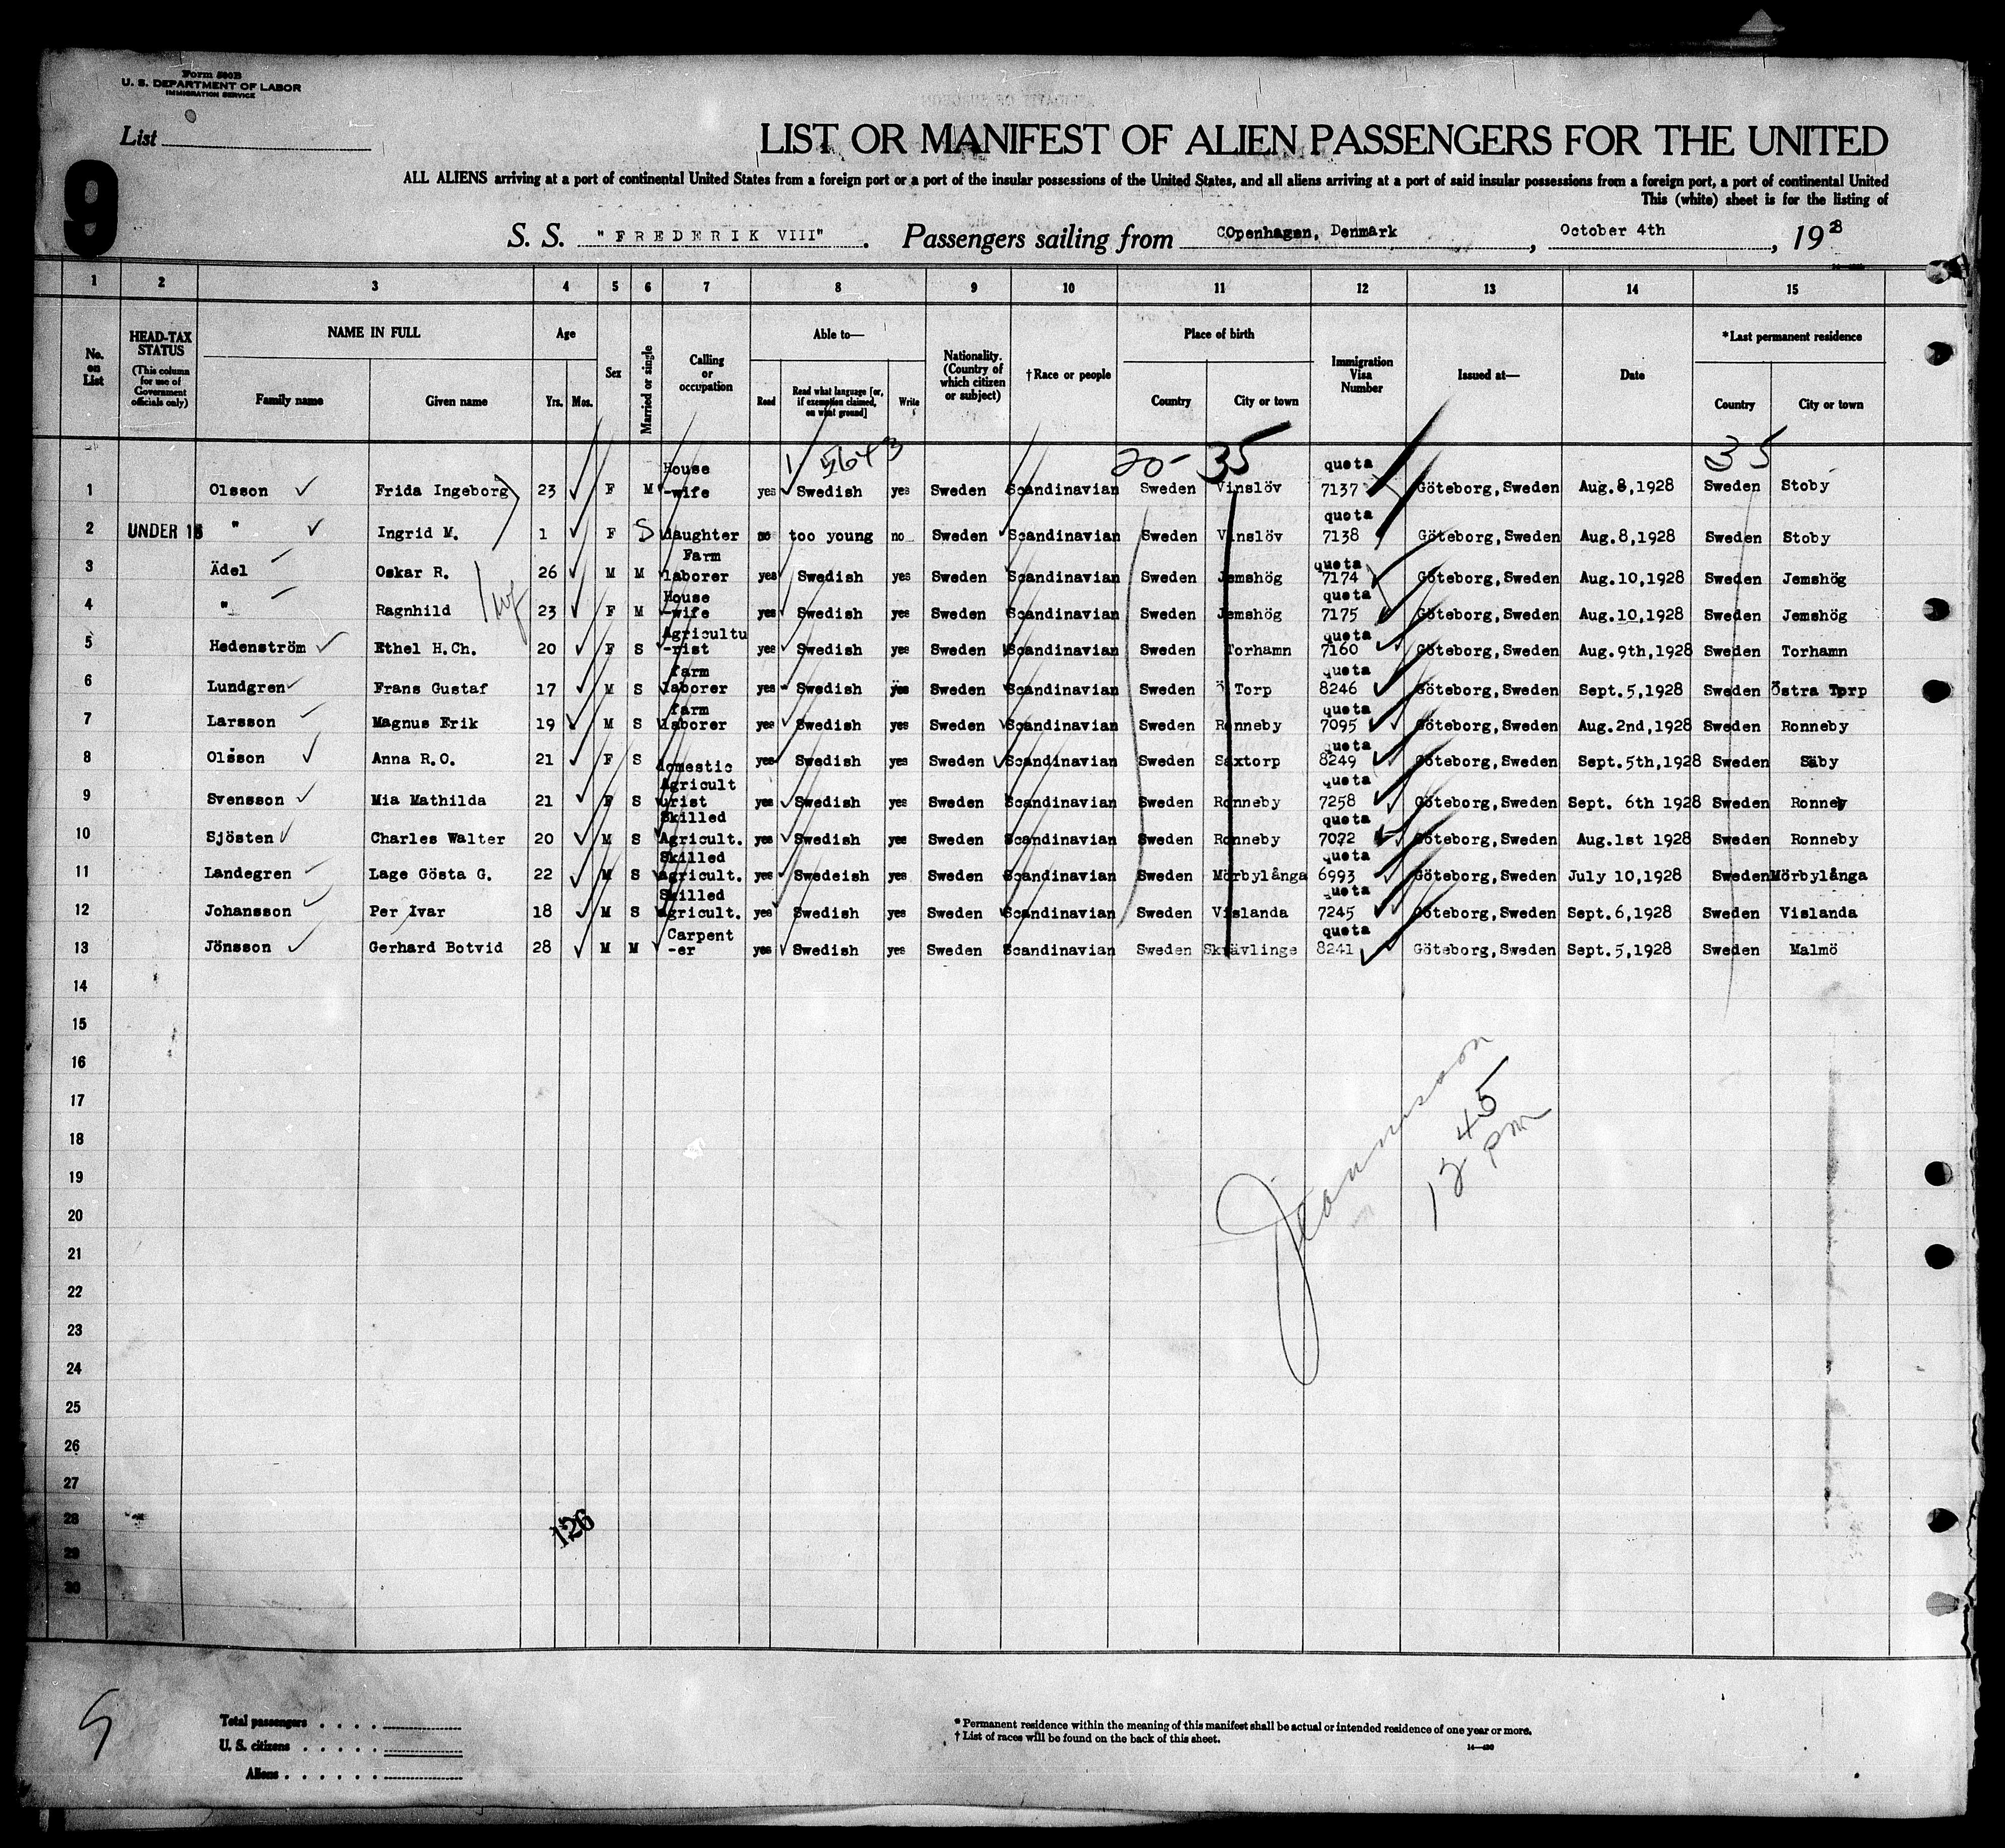 Form 500B
U. S. DEPARTMENT OF LABOR
IMMIGRATION SERVICE
List
9
LIST OR MANIFEST OF ALIEN PASSENGERS FOR THE UNITED
ALL ALIENS arriving at a port of continental United States from a foreign port or a port of the insular possessions of the United States, and all aliens arriving at a port of said insular possessions from a foreign port, a port of continental United
This (white) sheet is for the listing of
S. S. "FREDERIK VIII" . Passengers sailing from COpenhagen, Denmark , October 4th , 1928
1 2 3 4 5 6 7 8 9 10 11 12 13 14 15
No. on List
HEAD-TAX STATUS (This column for use of Government officials only)
NAME IN FULL Family name Given name
Age Yrs. Mos.
Sex
Married or single
Calling or occupation
Able to— Read Read what language [or, if exemption claimed, on what ground] Write
Nationality. (Country of which citizen or subject)
†Race or people
Place of birth Country City or town
Immigration Visa Number
Issued at—
Date
*Last permanent residence Country City or town
20- 35 35
1 Olsson Frida Ingeborg 23 F M House-wife yes Swedish yes Sweden Scandinavian Sweden Vinslöv quota 7137 Göteborg, Sweden Aug. 8, 1928 Sweden Stoby
2 UNDER 16 " Ingrid M. 1 F S daughter no too young no Sweden Scandinavian Sweden Vinslöv quota 7138 Göteborg, Sweden Aug. 8, 1928 Sweden Stoby
3 Ädel Oskar R. 26 M M Farm laborer yes Swedish yes Sweden Scandinavian Sweden Jemshög quota 7174 Göteborg, Sweden Aug. 10, 1928 Sweden Jemshög
4 " Ragnhild wf 23 F M House-wife yes Swedish yes Sweden Scandinavian Sweden Jemshög quota 7175 Göteborg, Sweden Aug. 10, 1928 Sweden Jemshög
5 Hedenström Ethel H.Ch. 20 F S Agricultu-rist yes Swedish yes Sweden Scandinavian Sweden Torhamn quota 7160 Göteborg, Sweden Aug. 9th, 1928 Sweden Torhamn
6 Lundgren Frans Gustaf 17 M S farm laborer yes Swedish yes Sweden Scandinavian Sweden Ö Torp quota 8246 Göteborg, Sweden Sept. 5, 1928 Sweden Östra Torp
7 Larsson Magnus Erik 19 M S farm laborer yes Swedish yes Sweden Scandinavian Sweden Ronneby quota 7095 Göteborg, Sweden Aug. 2nd, 1928 Sweden Ronneby
8 Olsson Anna R.O. 21 F S domestic yes Swedish yes Sweden Scandinavian Sweden Saxtorp quota 8249 Göteborg, Sweden Sept. 5th, 1928 Sweden Säby
9 Svensson Mia Mathilda 21 F S Agricult urist yes Swedish yes Sweden Scandinavian Sweden Ronneby quota 7258 Göteborg, Sweden Sept. 6th 1928 Sweden Ronneby
10 Sjösten Charles Walter 20 M S Skilled Agricult. yes Swedish yes Sweden Scandinavian Sweden Ronneby quota 7072 Göteborg, Sweden Aug. 1st 1928 Sweden Ronneby
11 Landegren Lage Gösta G. 22 M S Skilled agricult. yes Swedeish yes Sweden Scandinavian Sweden Mörbylånga quota 6993 Göteborg, Sweden July 10, 1928 Sweden Mörbylånga
12 Johansson Per Ivar 18 M S Skilled agricult. yes Swedish yes Sweden Scandinavian Sweden Vislanda quota 7245 Göteborg, Sweden Sept. 6, 1928 Sweden Vislanda
13 Jönsson Gerhard Botvid 28 M M Carpent-er yes Swedish yes Sweden Scandinavian Sweden Skrävlinge quota 8241 Göteborg, Sweden Sept. 5, 1928 Sweden Malmö
14
15
16
17
18
19
20
21
22
23
24
25
26
27
28
29
30
12 45
pm
126
9
Total passengers
U. S. citizens
Aliens
* Permanent residence within the meaning of this manifest shall be actual or intended residence of one year or more.
† List of races will be found on the back of this sheet.